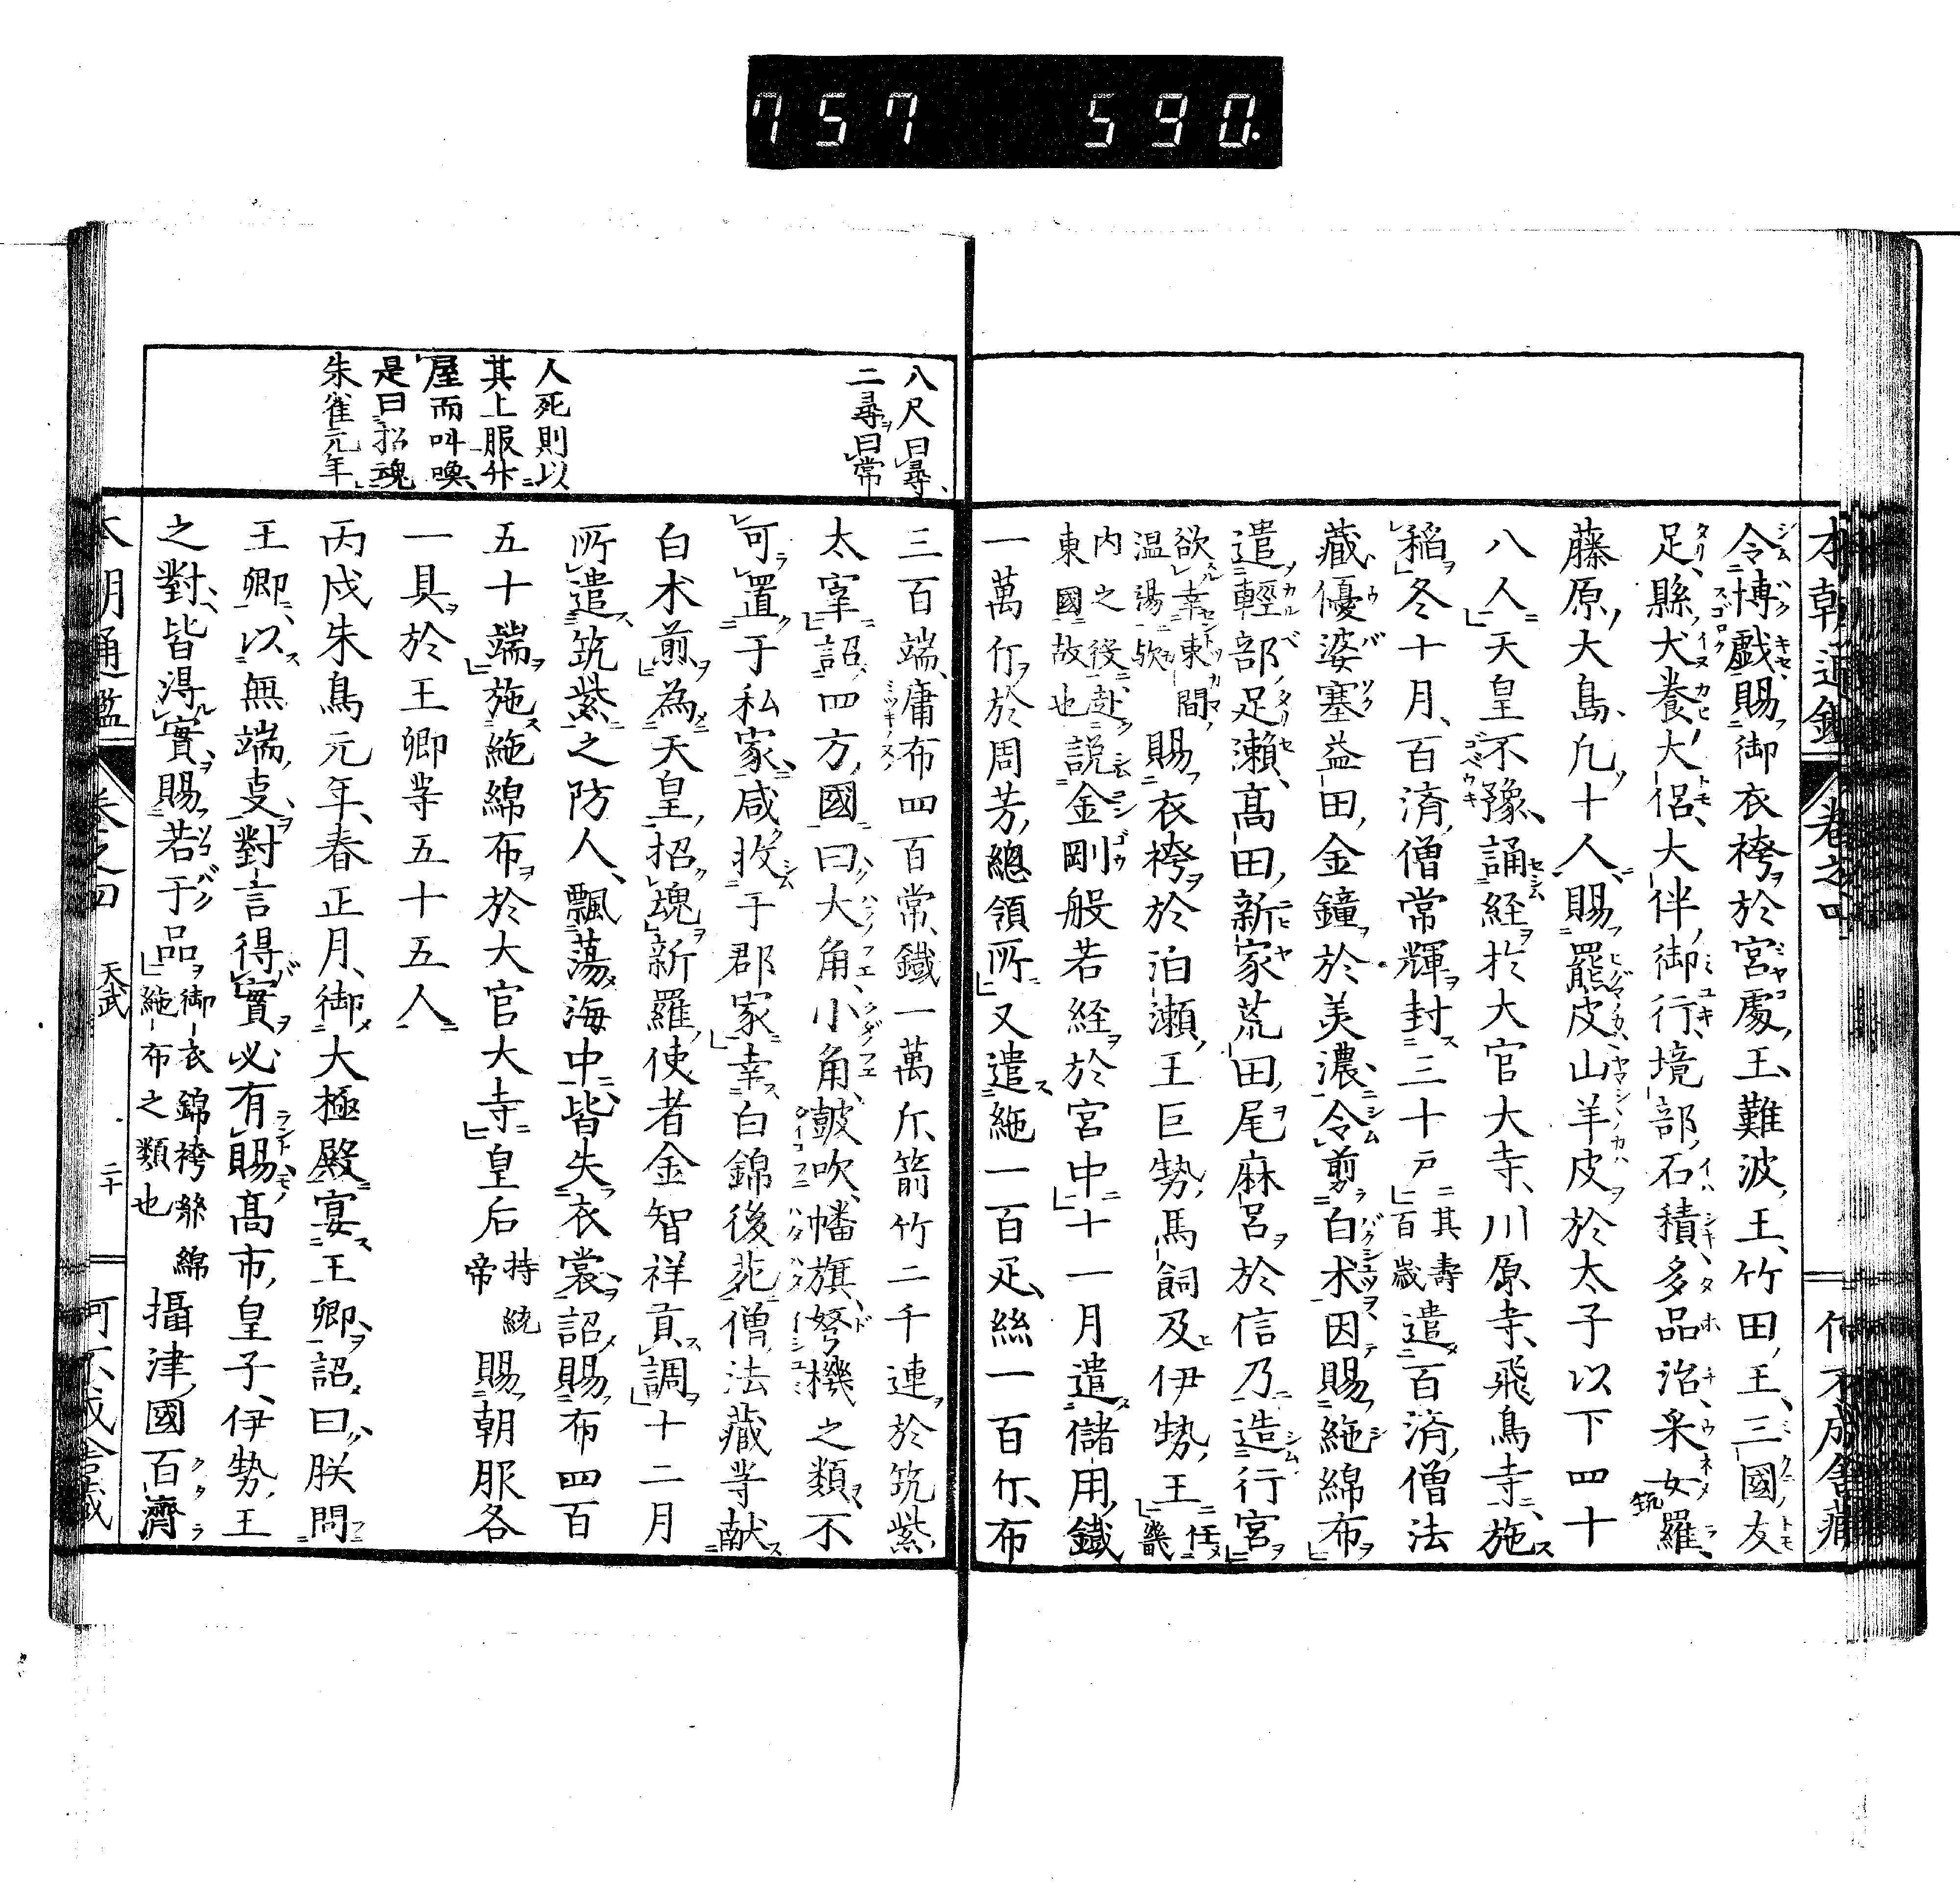 757 590.
本朝通鑑 卷之四
令博戲賜御衣袴於宮處王難波王竹田王三國友
足縣犬養大侶大伴御行境部石積多品治采女筑羅
藤原大島凡十人賜羆皮山羊皮於太子以下四十
八人天皇不豫誦経於大官大寺川原寺飛鳥寺施
稲冬十月百済僧常輝封三十戸其壽百歳遣百済僧法
藏優婆塞益田金鐘於美濃令剪白术因賜絁綿布
遣輕部足瀬高田新家荒田尾麻呂於信乃造行宮
欲幸束間温湯歟賜衣袴於泊瀬王巨勢馬飼及伊勢王任畿
内之後赴東國故也説金剛般若経於宮中十一月遣儲用鐡
一萬斤於周芳總領所又遣絁一百疋絲一百斤布
八尺曰尋
二尋曰常
三百端庸布四百常鐡一萬斤箭竹二千連於筑紫
太宰詔四方國曰大角小角皷吹幡旗弩機之類不
可置于私家咸收于郡家幸白錦後苑僧法藏等献
白术煎為天皇招魂新羅使者金智祥貢調十二月
所遣筑紫之防人飄蕩海中皆失衣裳詔賜布四百
五十端施絁綿布於大官大寺皇后持統帝賜朝服各
一具於王卿等五十五人
人死則以
其上服升
屋而叫喚
是曰招魂
朱雀元年
丙戌朱鳥元年春正月御大極殿宴王卿詔曰朕問
王卿以無端㕝對言得實必有賜高市皇子伊勢王
之對皆得實賜若于品御衣錦袴絲綿絁布之類也攝津國百濟
本朝通鑑 卷之四 天武 二十